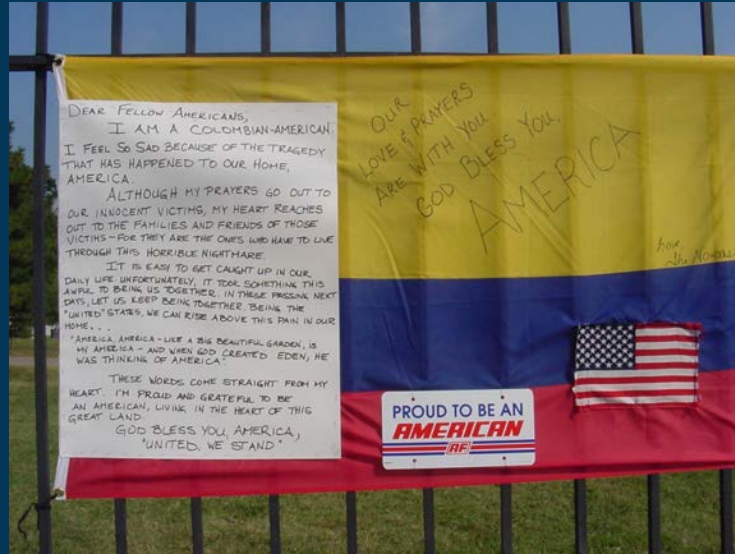 DEAR FELLOW AMERICANS,
I AM A COLOMBIAN-AMERICAN.
I FEEL SO SAD BECAUSE OF THE TRAGEDY
THAT HAS HAPPENED TO OUR HOME,
AMERICA.
ALTHOUGH MY PRAYERS GO OUT TO
OUR INNOCENT VICTIMS, MY HEART REACHES
OUT TO THE FAMILIES AND FRIENDS OF THOSE
VICTIMS - FOR THEY ARE THE ONES WHO HAVE TO LIVE
THROUGH THIS HORRIBLE NIGHTMARE.
IT IS EASY TO GET CAUGHT UP IN OUR
DAILY LIFE. UNFORTUNATELY, IT TOOK SOMETHING THIS
AWFUL TO BRING US TOGETHER. IN THESE PASSING NEXT
DAYS, LET US KEEP BEING TOGETHER. BEING THE
"UNITED" STATES, WE CAN RISE ABOVE THIS PAIN IN OUR
HOME...
"AMERICA, AMERICA - LIKE A BIG BEAUTIFUL GARDEN, IS
MY AMERICA - AND WHEN GOD CREATED EDEN, HE
WAS THINKING OF AMERICA."
THESE WORDS COME STRAIGHT FROM MY
HEART. I'M PROUD AND GRATEFUL TO BE
AN AMERICAN, LIVING IN THE HEART OF THIS
GREAT LAND.
GOD BLESS YOU, AMERICA,
"UNITED, WE STAND"
OUR
LOVE & PRAYERS
ARE WITH YOU
GOD BLESS YOU,
AMERICA
The
PROUD TO BE AN
AMERICAN
AF